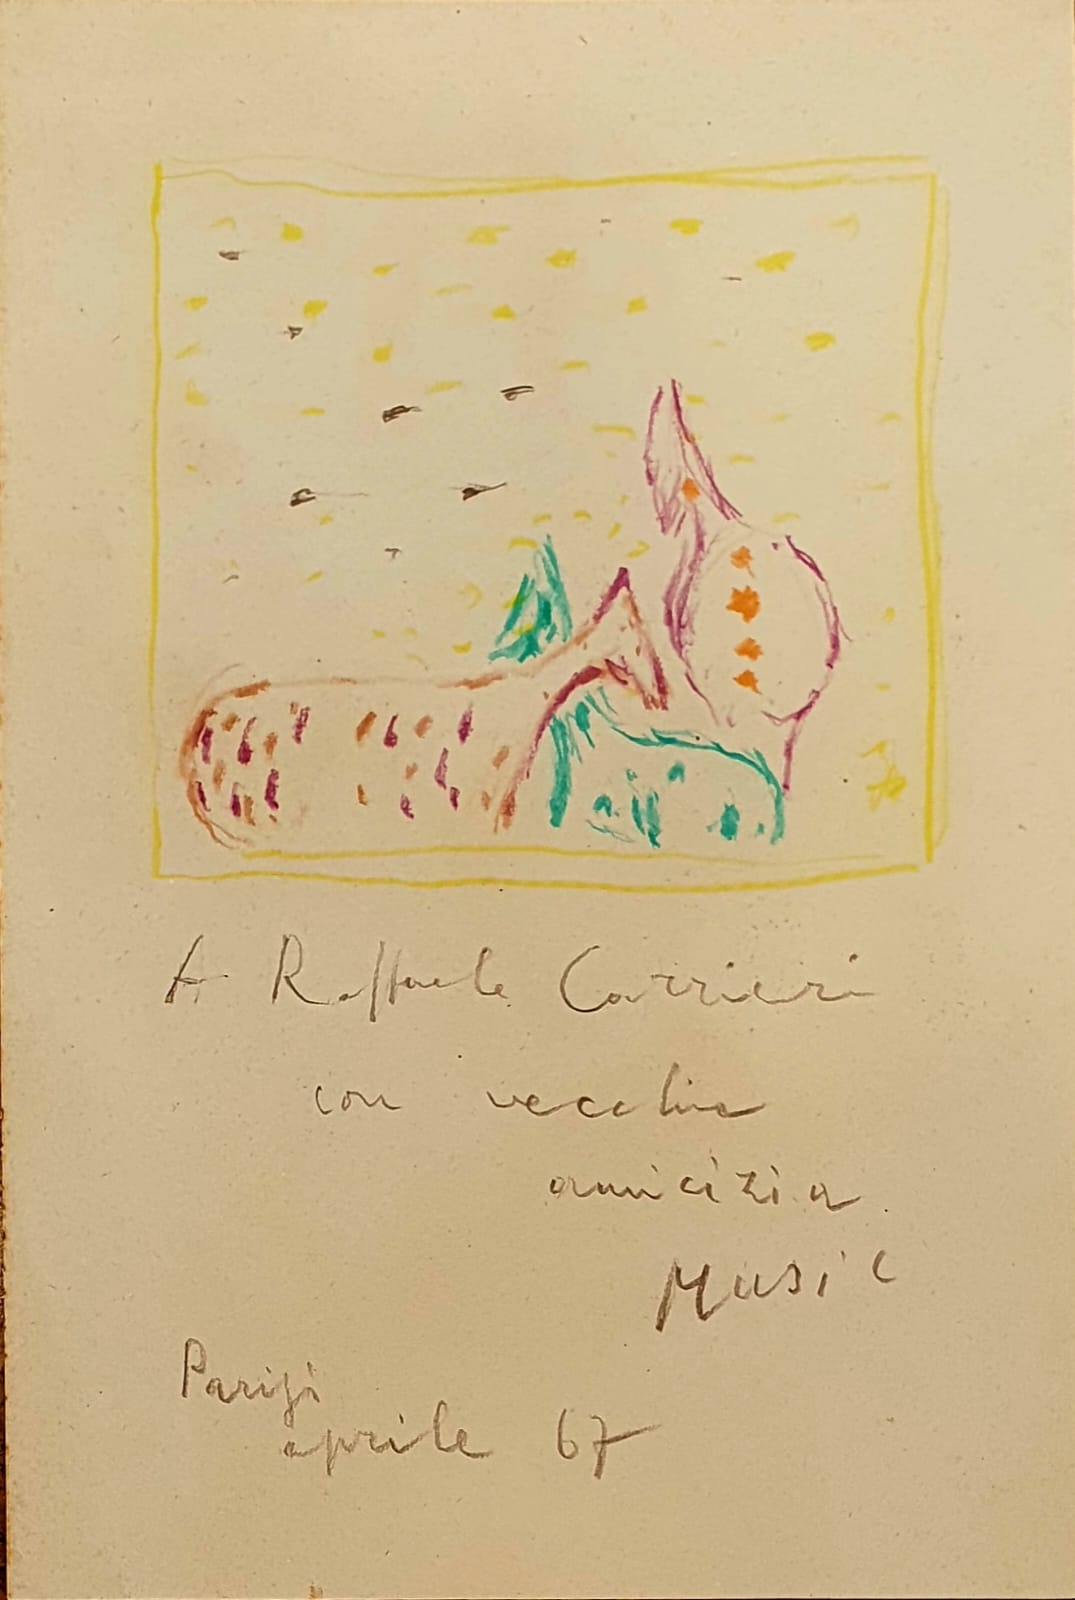 A Raffaele Carrieri
con vecchia
amicizia
Music
Parigi
aprile 67